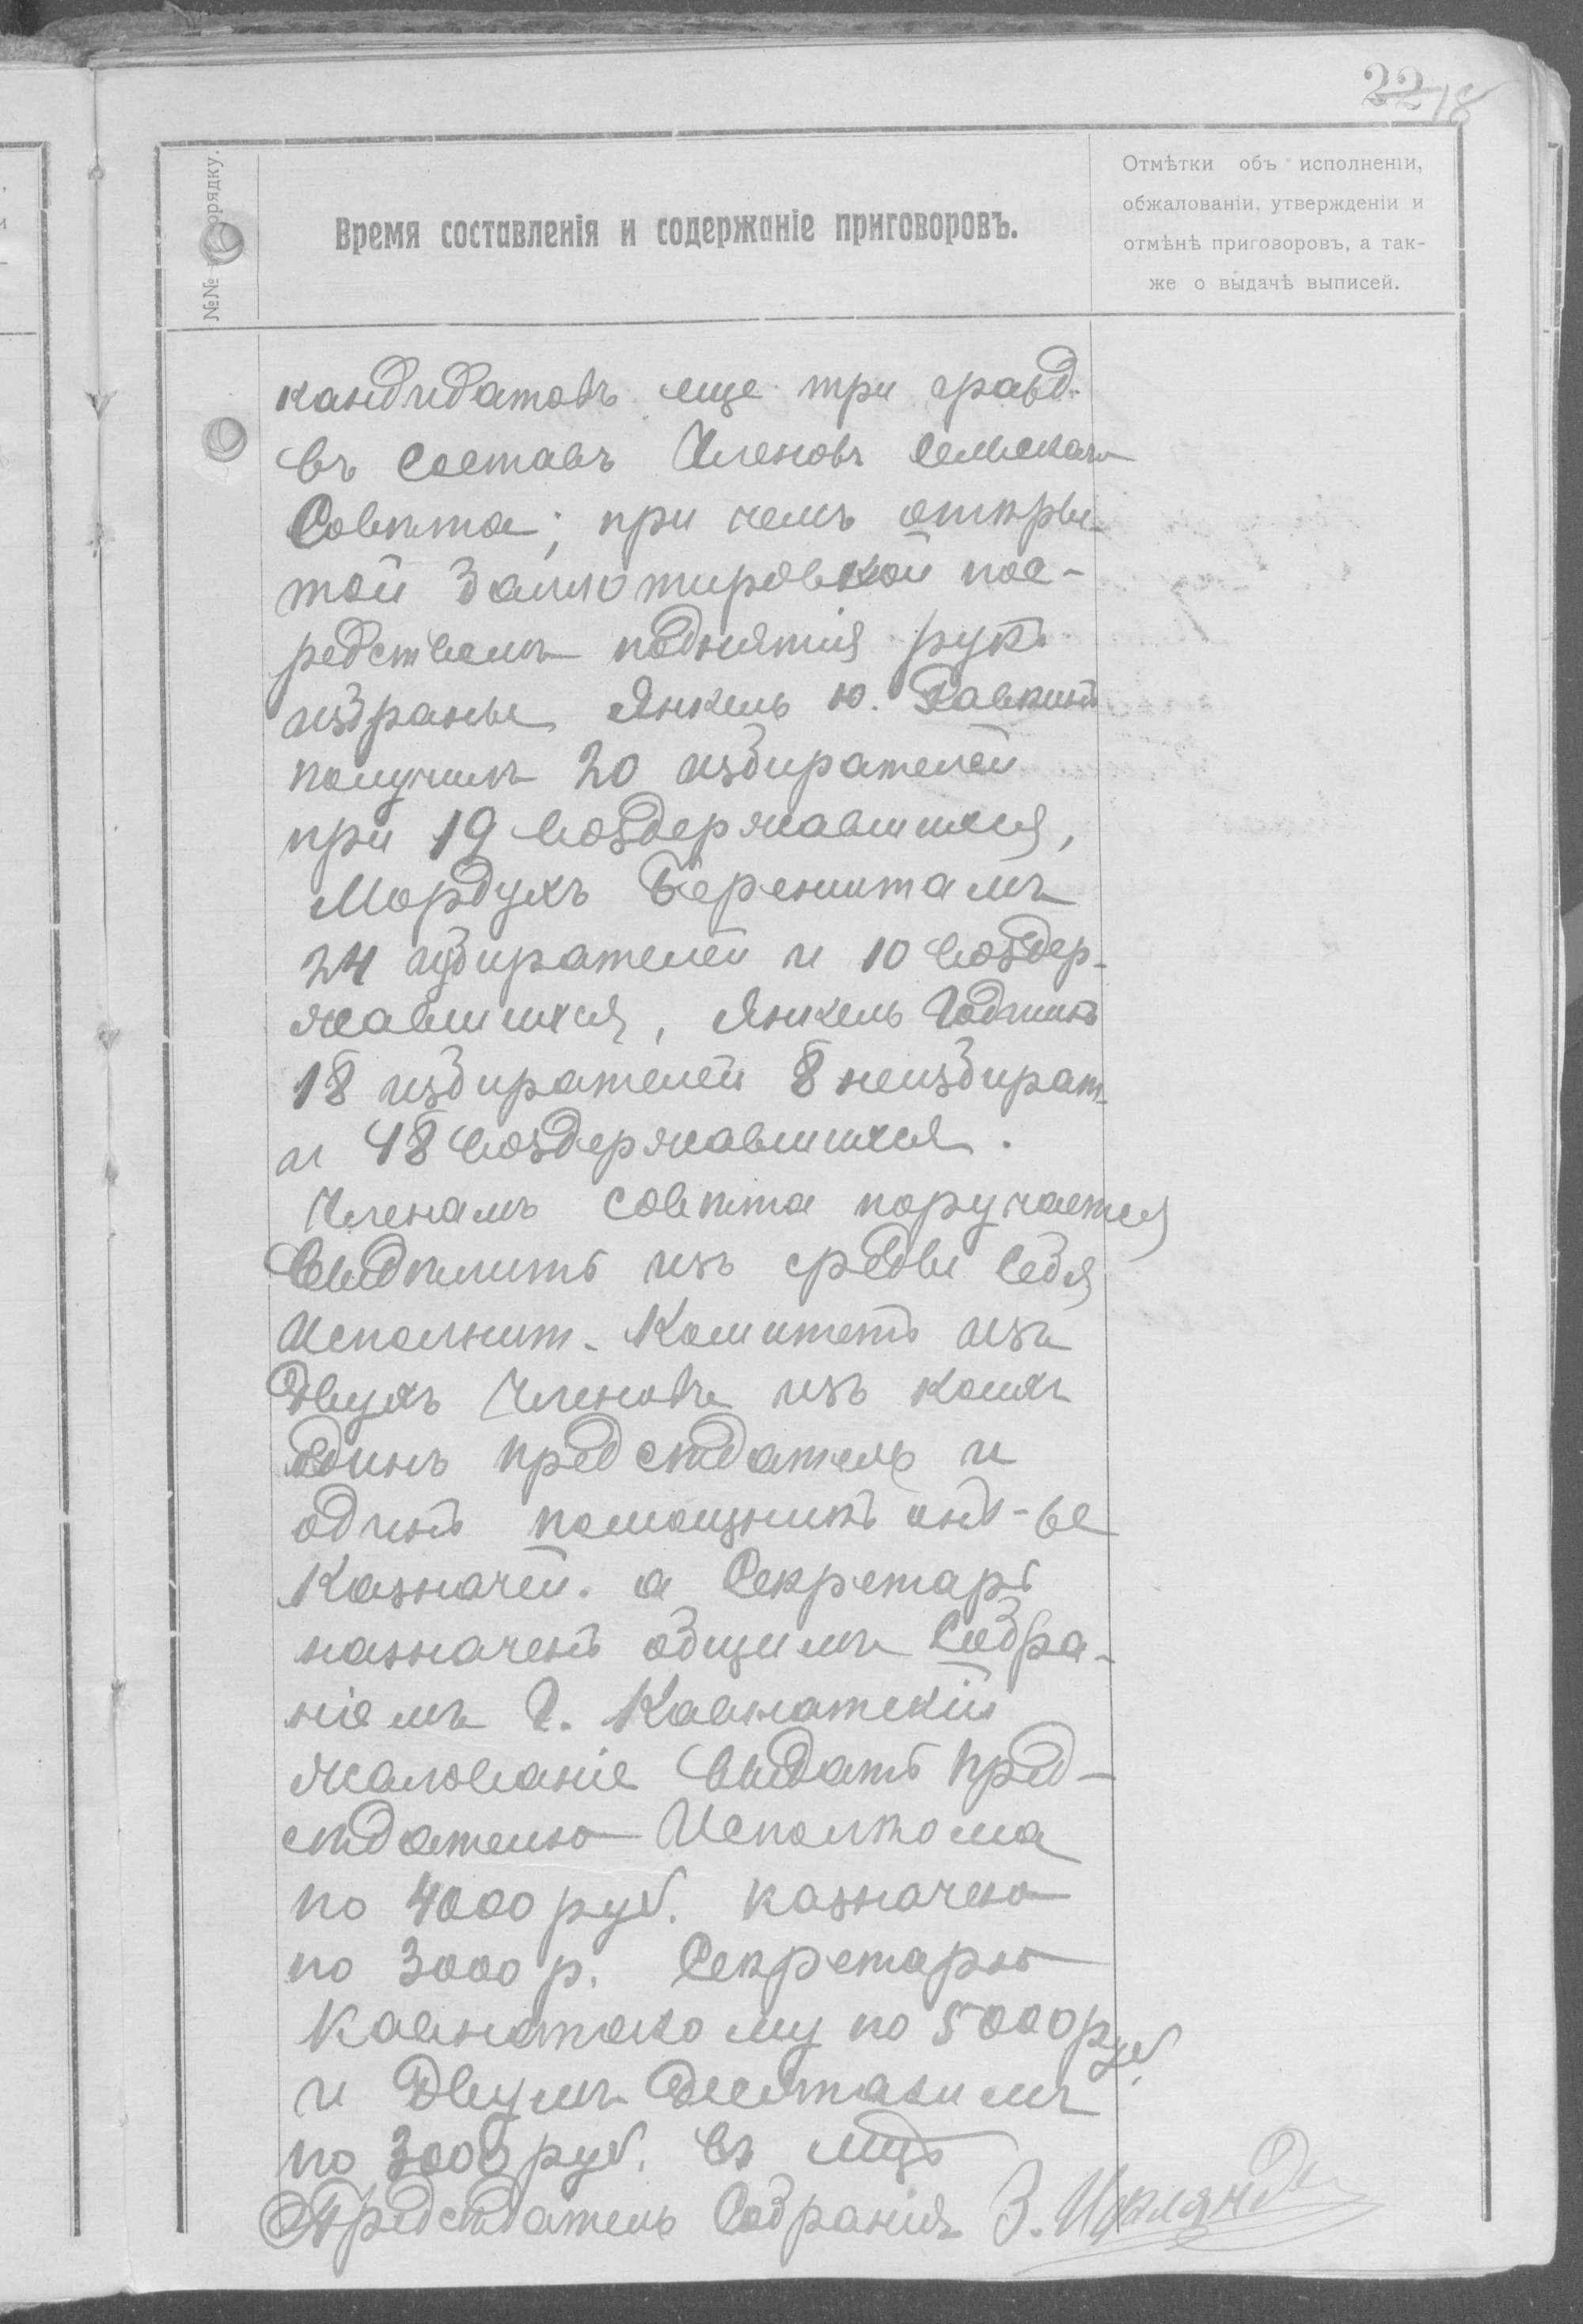 22 18
№№ порядку.
Время составленія и содержаніе приговоровъ.
Отмѣтки объ исполненіи,
обжалованіи, утвержденіи и
отмѣнѣ приговоровъ, а так-
же о выдачѣ выписей.
кандидатовъ еще три гражд.
въ составъ Членовъ Сельскаго
Совѣта; при чемъ откры-
той баллотировкой пос-
редствомъ поднятія рукъ
избраны Янкель Ю. Равкинъ
получилъ 20 избирателей
при 19 воздержавшихся,
Мордухъ Беренштамъ
24 избирателей и 10 воздер-
жавшихся, Янкель Годкинъ
18 избирателей 8 неизбират.
и 48 воздержавшихся.
Членамъ совѣта поручается
выдѣлить изъ среды себя
Исполнит. Комитетъ изъ
двухъ Членовъ изъ коихъ
единъ предсѣдатель и
одинъ помощникъ
Казначей. а Секретарь
назначенъ общимъ Собра-
ніемъ Кавнатскій
жалованіе выдать пред-
сѣдателю Исполкома
по 4000 руб. казначею
по 3000 р. Секретарю
Кавнатскому по 5000 руб.
и двумъ десятскимъ
по 3000 руб. въ мцъ
Предсѣдатель Собранія З.